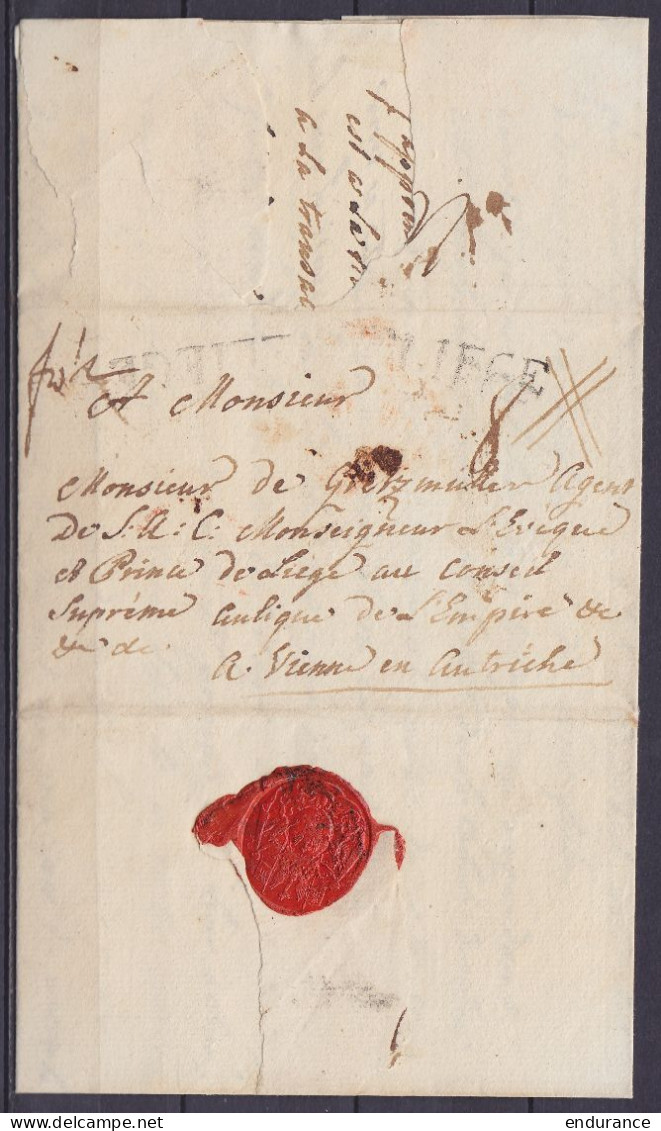 est a la
a la transac
LIEGE
A Monsieur
Monsieur de Gretzmuller Agent
De S: A: C: Monseigneur L'Evêque
et Prince de Liege au Conseil
Suprême aulique de L'Empire &c
&c &c.
A Vienne en Autriche
endurance